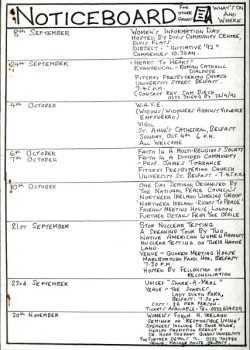 NOTICEBOARD
FOR OTHER GROUPS
WHAT'S ON AND WHERE!
8th SEPTEMBER
WOMEN'S INFORMATION DAY
HOSTED BY DIVIS COMMUNITY CENTRE,
DIVIS FLATS.
SUBJECT - "INITIATIVE '92"
COMMENCE - 10.30AM.
24th SEPTEMBER
"HEART TO HEART"
EVANGELICAL - ROMAN CATHOLIC
DIALOGUE.
FITZROY PRESBYTERIAN CHURCH
UNIVERSITY STREET BELFAST
- 7.45 P.M.
CONTACT REV. SAM BURCH
4th OCTOBER
W.A.V.E.
(WIDOWS/WIDOWERS AGAINST VIOLENCE
EMPOWERED)
VIGIL
ST. ANNE'S CATHEDRAL, BELFAST
SUNDAY, OCT. 4th, 6 P.M.
ALL WELCOME
6th OCTOBER
7th OCTOBER
FAITH IN A MULTI-RELIGIOUS SOCIETY
FAITH IN A DIVIDED COMMUNITY
- PROF. JAMES TORRANCE
FITZROY PRESBYTERIAN CHURCH
UNIVERSITY ST. BELFAST - 7.45 P.M.
10th OCTOBER
ONE DAY SEMINAR ORGANISED BY
THE NATIONAL PEACE COUNCIL'S
NORTHERN IRELAND WORKING GROUP
NORTHERN IRELAND - "ROUTES TO PEACE"
FRIENDS MEETING HOUSE, LONDON
FURTHER DETAILS FROM THE OFFICE
21st SEPTEMBER
STOP NUCLEAR TESTING
A SPEAKING TOUR BY TWO
NATIVE AMERICAN WOMEN AGAINST
NUCLEAR TESTING ON THEIR NATIVE
LAND.
VENUE - QUAKER MEETING HOUSE
MARLBOROUGH PARK NTH, BELFAST
- 7.30 P.M.
HOSTED BY FELLOWSHIP OF
RECONCILIATION
23rd SEPTEMBER
UNICEF "SHARE-A-MEAL"
VENUE - THE STABLES
LADY DIXON PARK,
BELFAST. 7.30pm
COST: £6 PER PERSON.
TICKETS AVAILABLE:
20th NOVEMBER
WOMEN'S FORUM N. IRELAND
SEMINAR ON "RESPONSIBLE LIVING"
SPEAKERS INCLUDE DR. JUNE WILDE,
HEALTH PROMOTION GROUP